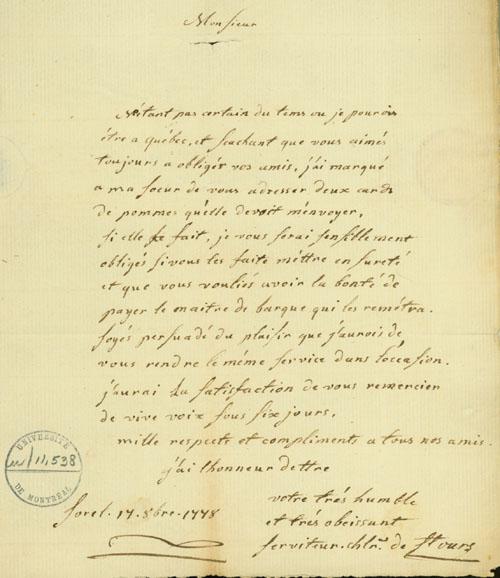 Monsieur
N'étant pas certain du tems ou je pourois
être a québec, et scachant que vous aimés
toujours à obligér vos amis, j'ai marqué
a ma soeur de vous adresser deux cards
de pommes qu'elle devoit m'énvoyer,
si elle le fait, je vous serai sensiblement
obligés si vous les faite méttre en sureté
et que vous vouliés avoir la bonté de
payer le maitre de barque qui les remétra.
soyés persuadé du plaisir que j'aurois de
vous rendre le même service dans l'occasion.
j'aurai la satisfaction de vous remercier
de vive voix sous six jours,
mille respects et compliments a tous nos amis.
j'ai lhonneur dettre
votre trés humble
et trés obeissant
serviteur. chlr. de St ours
sorel. 17. 8bre. 1778
UNIVERSITÉ
11,538
DE MONTRÉAL